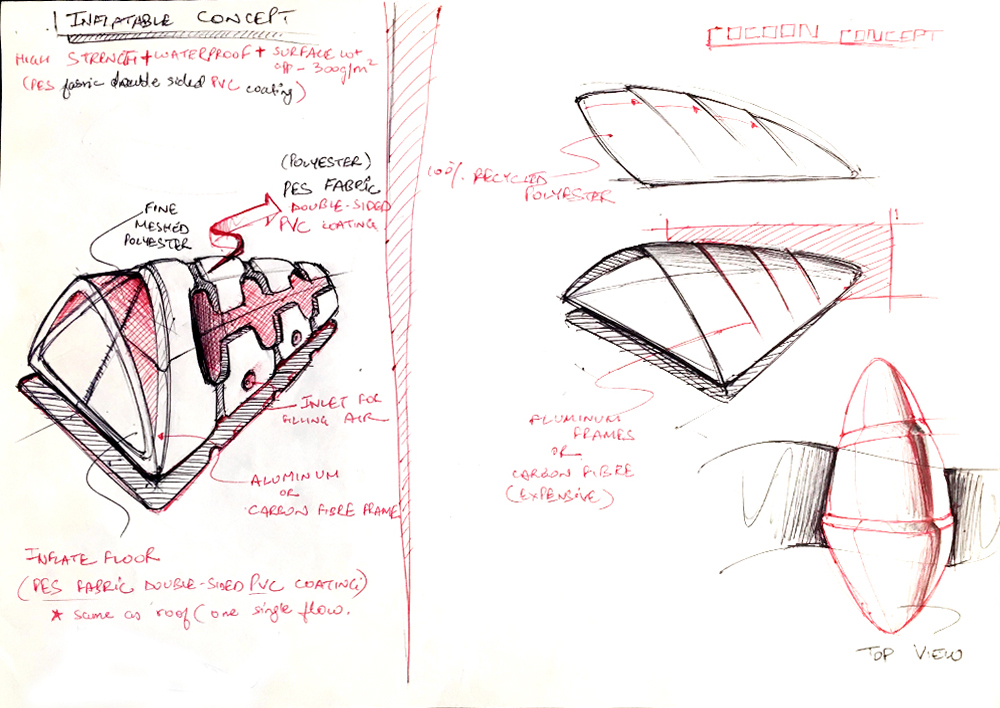 INFLATABLE CONCEPT
HIGH STRENGTH + WATERPROOF + SURFACE WT
300g/m²
(PES fabric double sided PVC coating)
(POLYESTER)
PES FABRIC
DOUBLE-SIDED
PVC COATING
FINE
MESHED
POLYESTER
INLET FOR
FILLING AIR
ALUMINUM
OR
CARBON FIBRE FRAME
INFLATE FLOOR
(PES FABRIC DOUBLE-SIDED PVC COATING)
* same as roof (one single flow.
COCOON CONCEPT
100% RECYCLED
POLYESTER
ALUMINUM
FRAMES
OR
CARBON FIBRE
(EXPENSIVE)
TOP VIEW